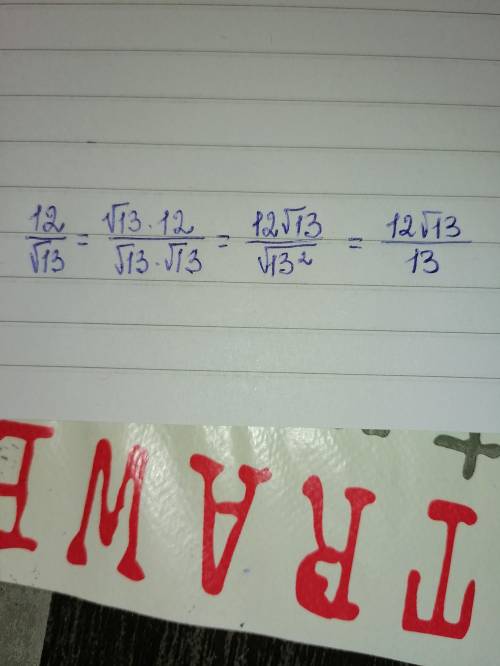 12/√13 = √13·12/√13·√13 = 12√13/√13² = 12√13/13
TRAWE